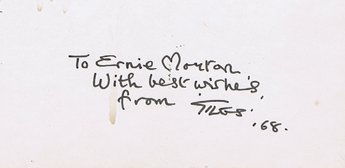 To Ernie Morton.
With best wishes
from GILES.
'68.